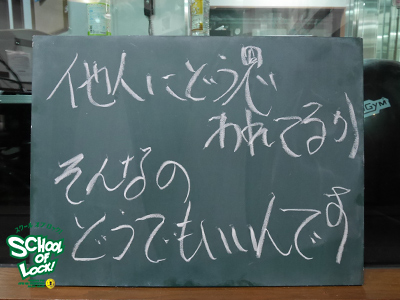 他人にどう思
われてるか
そんなの
どうでもいいんです
GYM
SCHOOL
OF
LOCK!